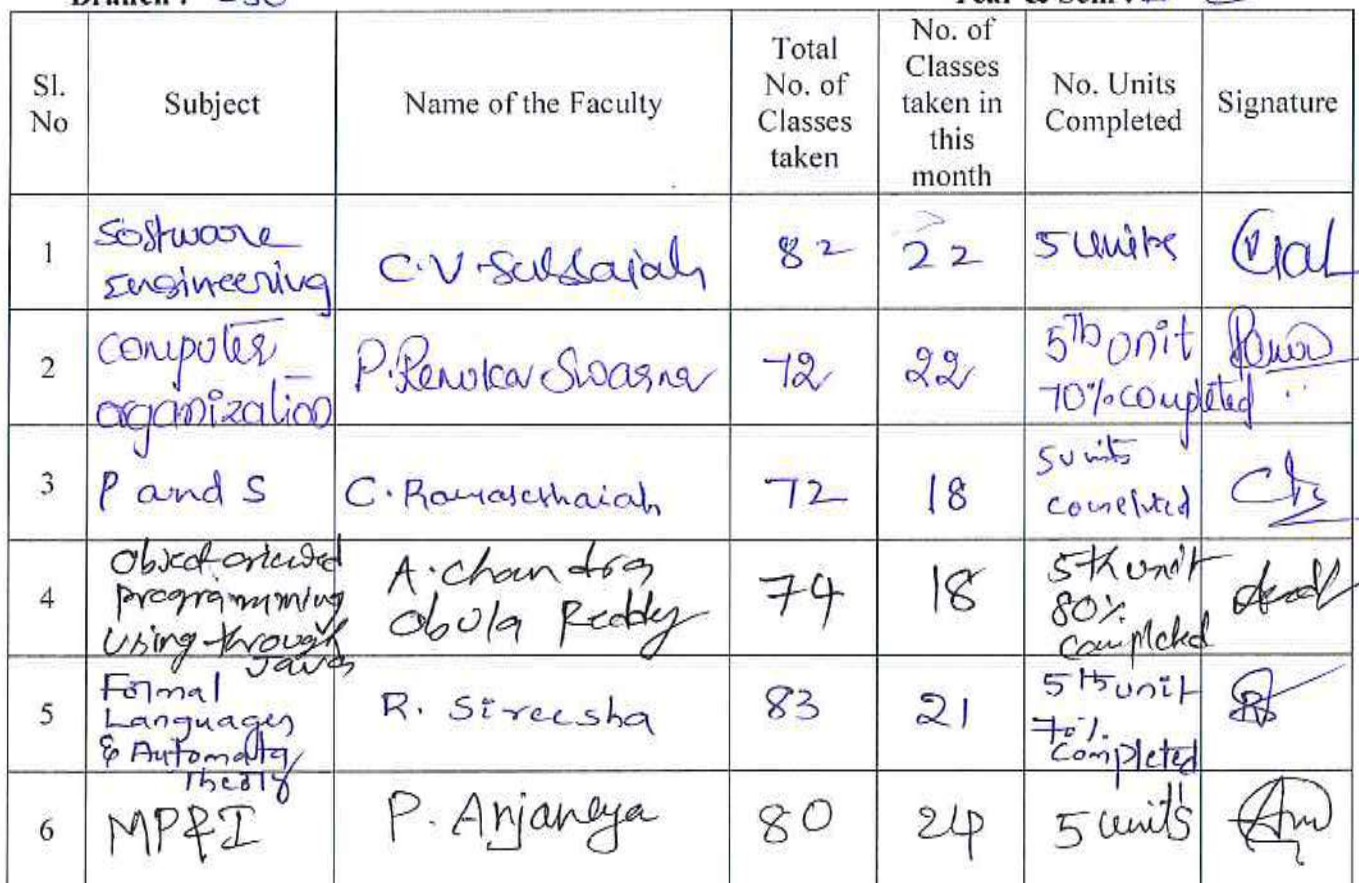 Branch :
Year & Sem :
Sl. No
Subject
Name of the Faculty
Total No. of Classes taken
No. of Classes taken in this month
No. Units Completed
Signature
1
Software
Engineering
C.V.Subbaiah
82
22
5 Units
2
Computer
organization
P.Renuka Swarna
72
22
5th unit
70% completed
3
P and S
C. Ramaseshaiah
72
18
5 units
completed
4
Object oriented
programming
using through
Java
A. Chandra
Obula Reddy
74
18
5th unit
80%
completed
5
Formal
Languages
& Automata
Theory
R. Sireesha
83
21
5th unit
70%
completed
6
MP&I
P. Anjaneya
80
24
5 units